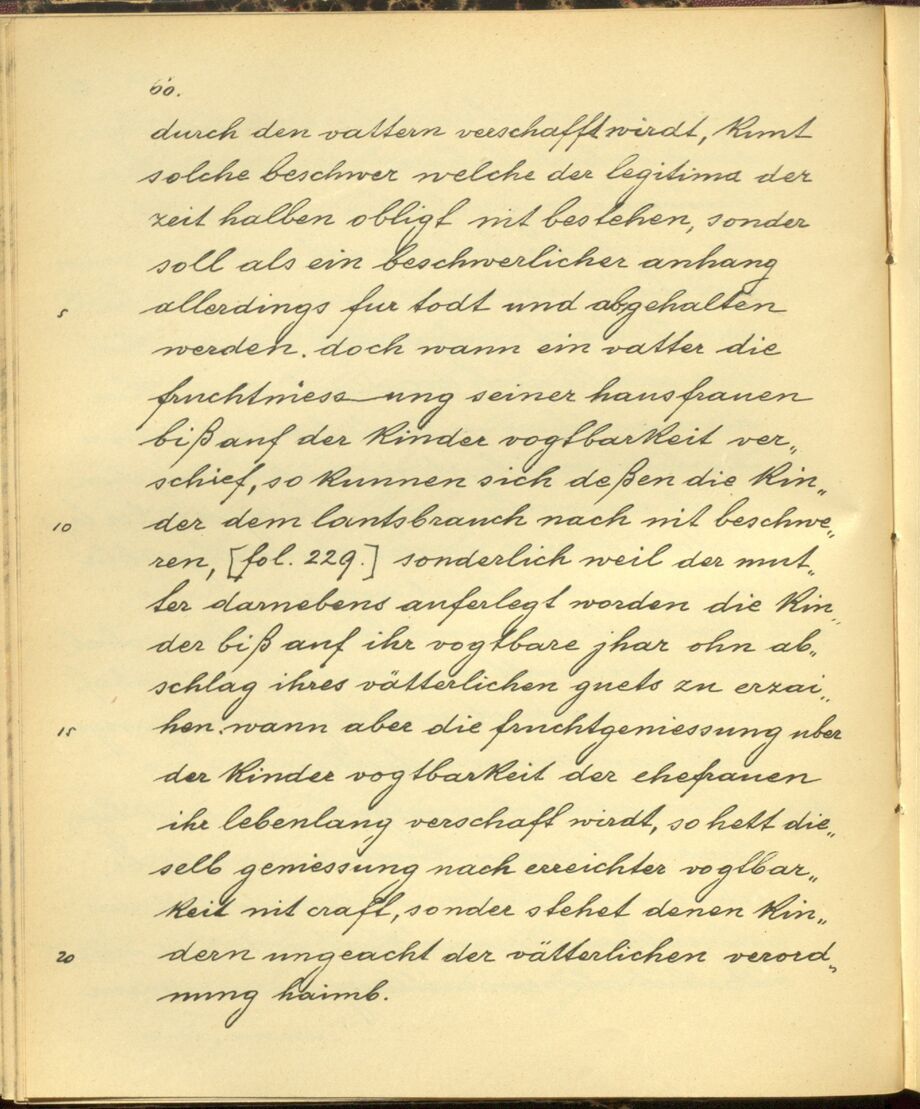 60.
durch den vattern verschafft wirdt, kunt
solche beschwer welche der legitima der
zeit halben obligt nit bestehen, sonder
soll als ein beschwerlicher anhang
5 allerdings fur todt und abgehalten
werden. doch wann ein vatter die
fruchtniess—ung seiner hausfrauen
biß auf der kinder vogtbarkeit ver„
schief, so kunnen sich deßen die kin„
10 der dem lantsbrauch nach nit beschwe„
ren, [fol. 229.] sonderlich weil der mut„
ter darnebens auferlegt worden die kin„
der biß auf ihr vogtbare jhar ohn ab„
schlag ihres vätterlichen guets zu erzai„
15 hen. wann aber die fruchtgeniessung uber
der kinder vogtbarkeit der ehefrauen
ihr lebenlang verschaft wirdt, so hett die„
selb geniessung nach erreichter vogtbar„
keit nit craft, sonder stehet denen kin„
20 dern ungeacht der vätterlichen verord„
nung haimb.